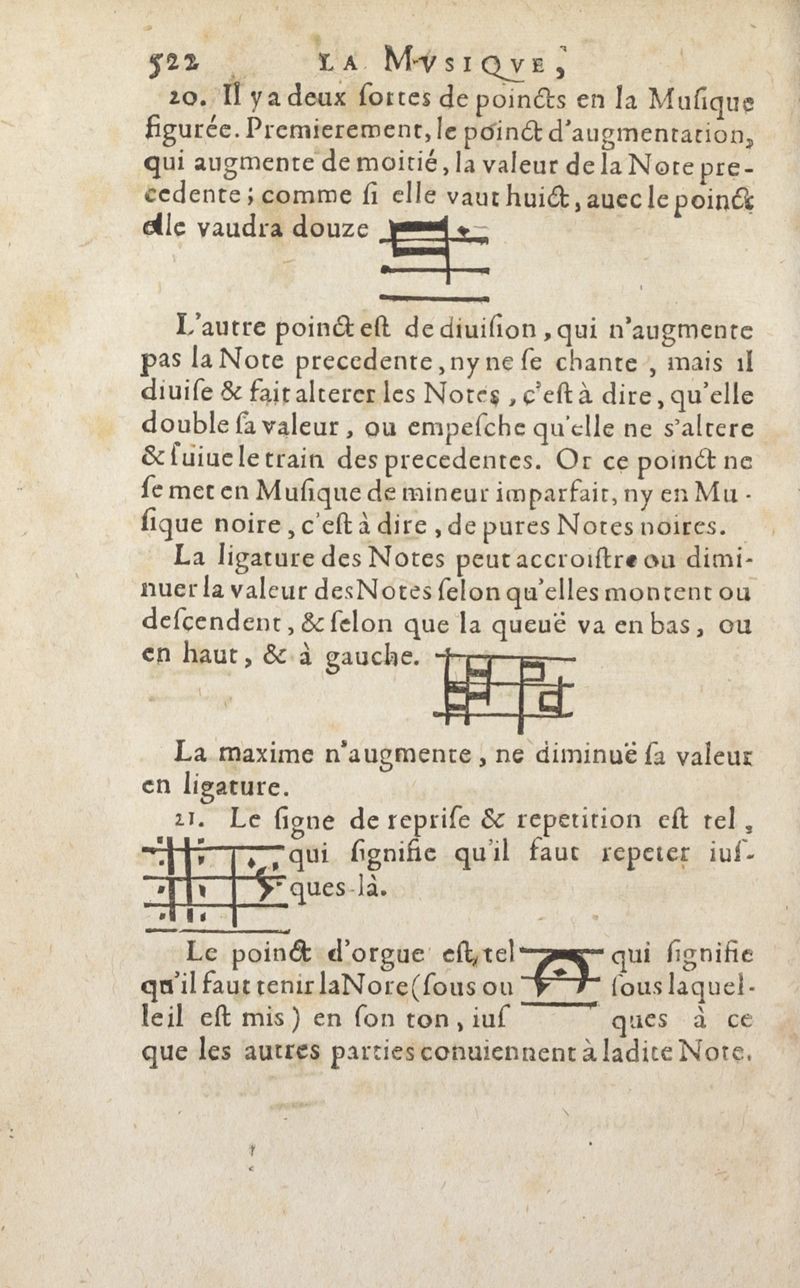 522 LA MVSIQVE,
20. Il y a deux ſortes de poincts en la Muſique
figurée. Premierement, le poinct d'augmentation,
qui augmente de moitié, la valeur de la Note pre-
cedente; comme ſi elle vaut huict, auec le poinct
elle vaudra douze
L'autre poinct eſt de diuiſion, qui n'augmente
pas la Note precedente, ny ne ſe chante, mais il
diuiſe & fait alterer les Notes, c'eſt à dire, qu'elle
double ſa valeur, ou empeſche qu'elle ne s'altere
& ſuiue le train des precedentes. Or ce poinct ne
ſe met en Muſique de mineur imparfait, ny en Mu-
ſique noire, c'eſt à dire, de pures Notes noires.
La ligature des Notes peut accroiſtre ou dimi-
nuer la valeur des Notes ſelon qu'elles montent ou
deſcendent, & ſelon que la queuë va en bas, ou
en haut, & à gauche.
La maxime n'augmente, ne diminuë ſa valeur
en ligature.
21. Le ſigne de repriſe & repetition eſt tel,
qui ſignifie qu'il faut repeter iuſ-
ques-là.
Le poinct d'orgue eſt, tel qui ſignifie
qu'il faut tenir la Note (ſous ou ſous laquel-
le il eſt mis) en ſon ton, iuſ ques à ce
que les autres parties conuiennent à ladite Note.